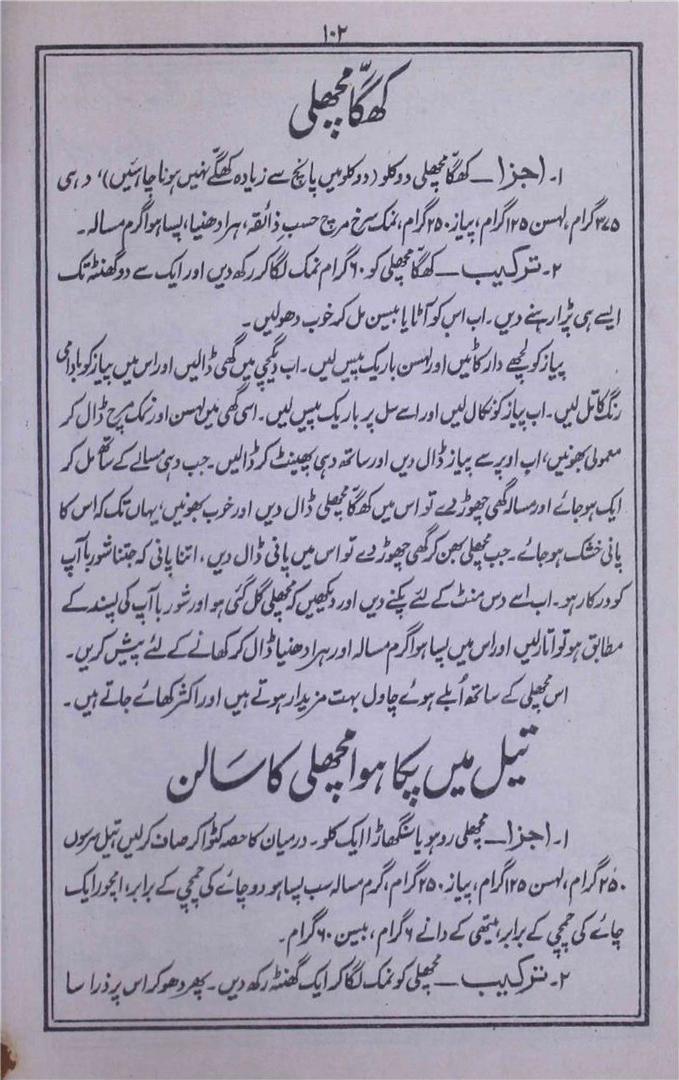 ۱۰۲
کھگّا مچھلی
۱۔ اجزا — کھگّا مچھلی دو کلو (دو کلو میں پانچ سے زیادہ کھگّے نہیں ہونا چاہئیں)، دہی
۲۷۵ گرام، لہسن ۱۲۵ گرام، پیاز ۲۵۰ گرام، نمک سرخ مرچ حسبِ ذائقہ، ہرا دھنیا، پسا ہوا گرم مسالہ۔
۲۔ ترکیب — کھگّا مچھلی کو ۶۰ گرام نمک لگا کر رکھ دیں اور ایک سے دو گھنٹہ تک
ایسے ہی پڑا رہنے دیں۔ اب اس کو آٹا یا بیسن مل کر خوب دھولیں۔
پیاز کو لچھے دار کاٹیں اور لہسن باریک پیس لیں۔ اب دیگچی میں گھی ڈالیں اور اس میں پیاز کو بادامی
رنگ کا تل لیں۔ اب پیاز کو نکال لیں اور اسے سل پر باریک پیس لیں۔ اسی گھی میں لہسن اور نمک مرچ ڈال کر
معمولی بھونیں، اب اوپر سے پیاز ڈال دیں اور ساتھ دہی پھینٹ کر ڈالیں۔ جب دہی مسالے کے ساتھ مل کر
ایک ہو جائے اور مسالہ گھی چھوڑ دے تو اس میں کھگّا مچھلی ڈال دیں اور خوب بھونیں، یہاں تک کہ اس کا
پانی خشک ہو جائے۔ جب مچھلی بھن کر گھی چھوڑ دے تو اس میں پانی ڈال دیں، اتنا پانی کہ جتنا شوربا آپ
کو درکار ہو۔ اب اسے دس منٹ کے لئے پکنے دیں اور دیکھیں کہ مچھلی گل گئی ہو اور شوربا آپ کی پسند کے
مطابق ہو تو اتار لیں اور اس میں پسا ہوا گرم مسالہ اور ہرا دھنیا ڈال کر کھانے کے لئے پیش کریں۔
اس مچھلی کے ساتھ اُبلے ہوئے چاول بہت مزیدار ہوتے ہیں اور اکثر کھائے جاتے ہیں۔
تیل میں پکا ہوا مچھلی کا سَالن
۱۔ اجزا — مچھلی روہو یا سنگھاڑا ایک کلو۔ درمیان کا حصہ کٹوا کر صاف کرلیں، تیل سرسوں
۲۵۰ گرام، لہسن ۱۲۵ گرام، پیاز ۲۵۰ گرام، گرم مسالہ سب پسا ہو دو چائے کی چمچی کے برابر، امچور ایک
چائے کی چمچی کے برابر، میتھی کے دانے ۶ گرام، بیسن ۶۰ گرام۔
۲۔ ترکیب — مچھلی کو نمک لگا کر ایک گھنٹہ رکھ دیں۔ پھر دھو کر اس پر ذرا سا